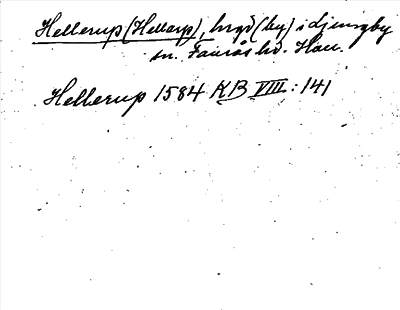 Hellerup (Hellarp), hrgd (by) i Ljungby
sn. Faurås hd. Hall.
Hellerup 1584 KB VIII: 141